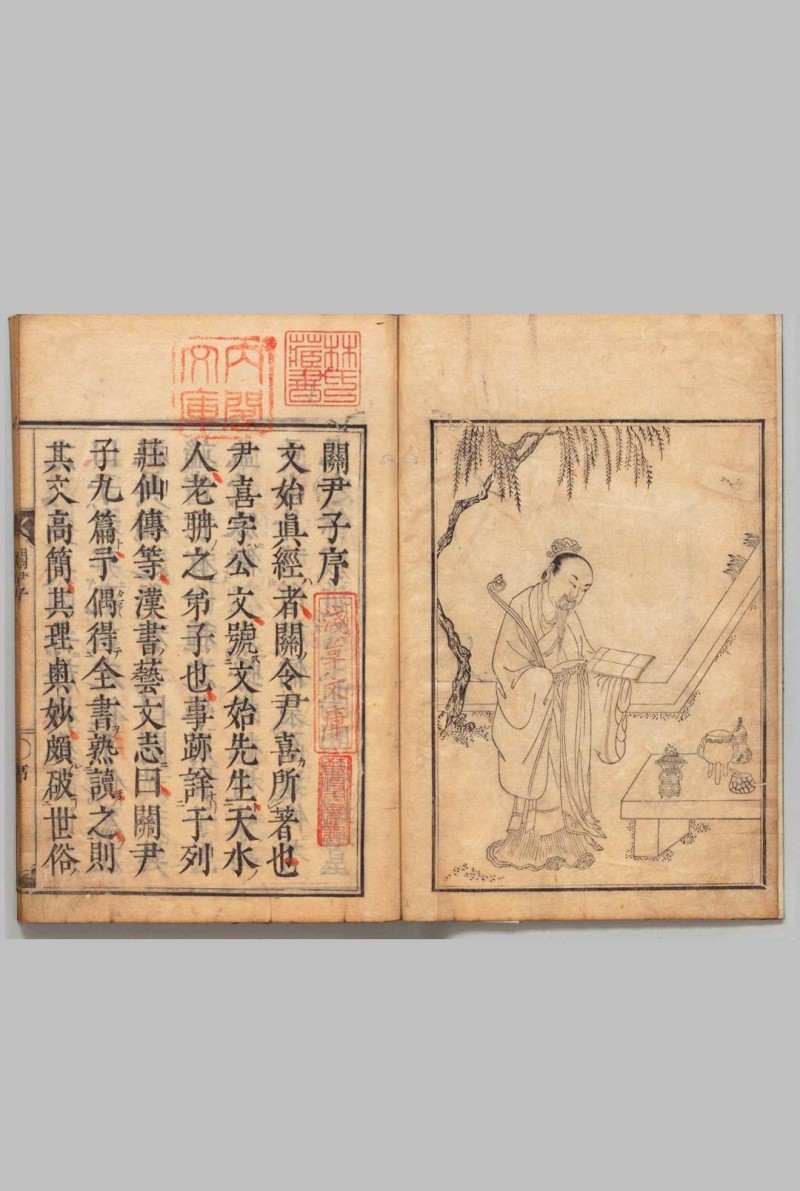 關尹子序
文始眞經者關令尹喜所著也
尹喜字公文號文始先生天水
人老聃之弟子也事跡詮于列
莊仙傳等漢書藝文志曰關尹
子九篇予偶得全書熟讀之則
其文高簡其理奥妙頗破世俗
關尹子
序
林氏藏書
内閣文庫
淺草文庫